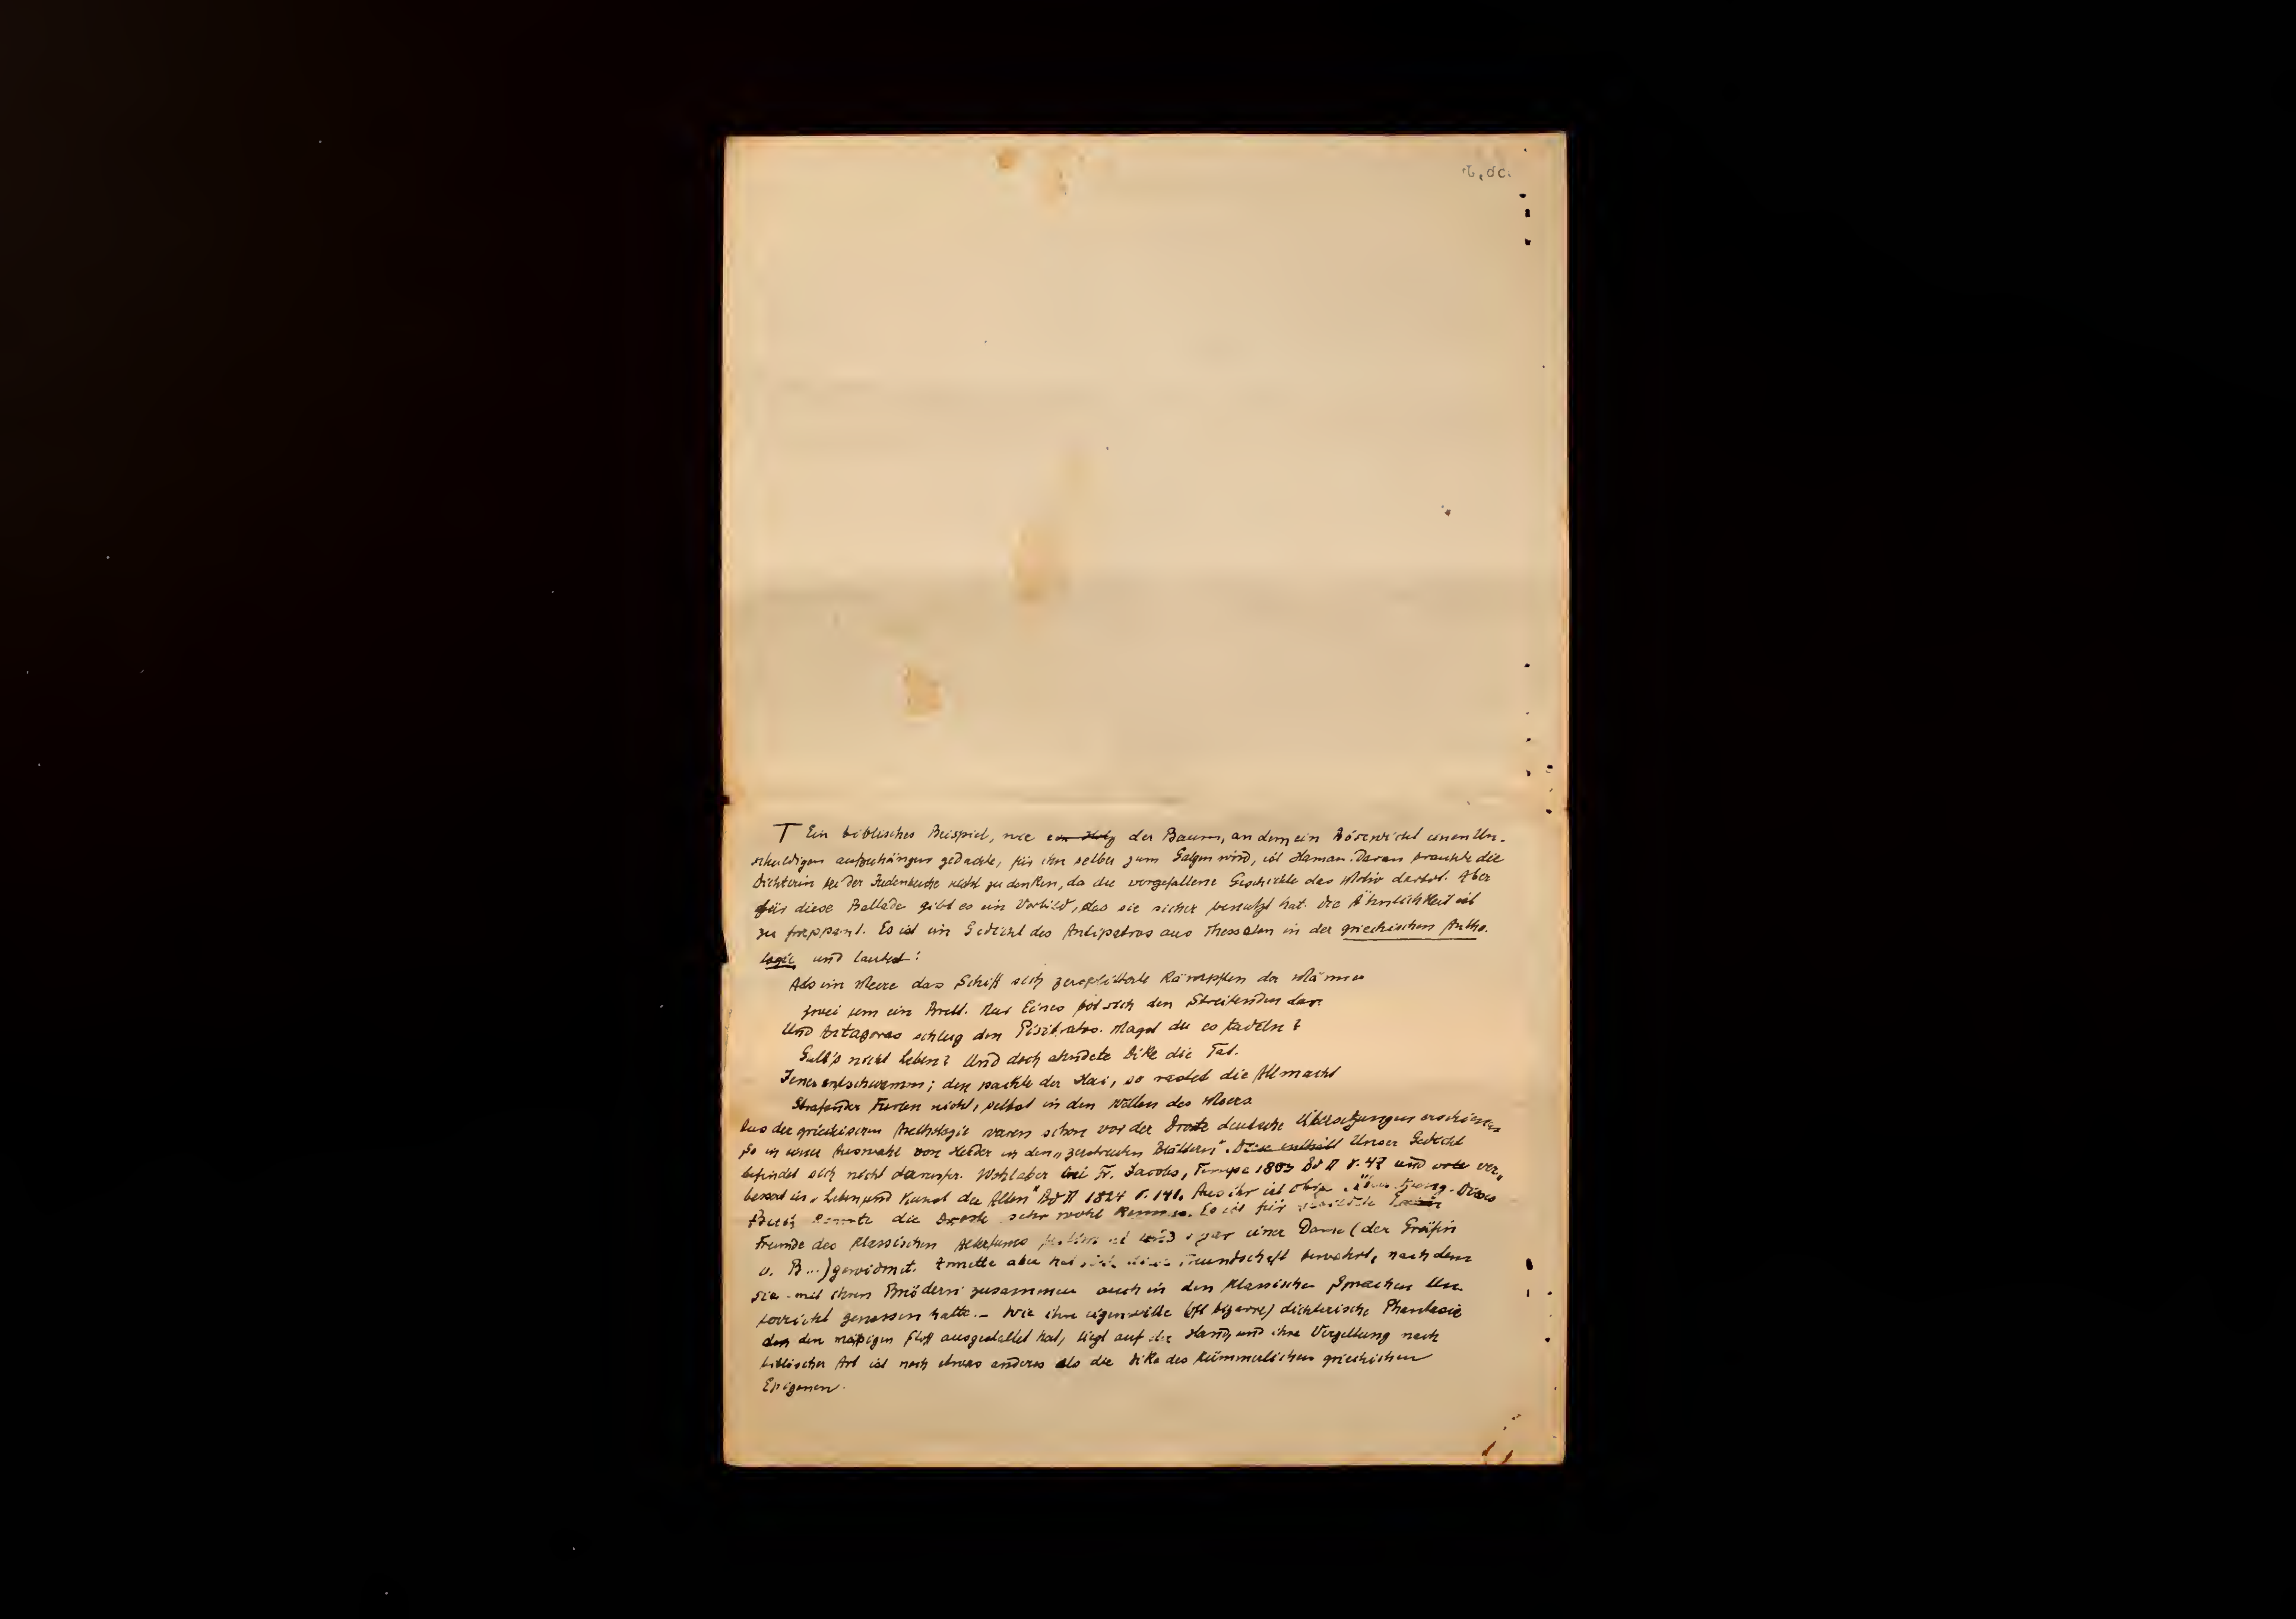 Ein biblisches Beispiel, wie ein Holz der Baum, an dem ein Bösewicht einen Un-
schuldigen aufzuhängen gedachte, für ihn selber zum Galgen wird, ist Haman. Daran brauchte die
Dichterin bei der Judenbuche nicht zu denken, da die vorgefallene Geschichte das Motiv darbot. Aber
für diese Ballade gibt es ein Vorbild, das sie sicher benutzt hat. Die Ähnlichkeit ist
zu frappant. Es ist ein Gedicht des Antipatros aus Thessalon in der griechischen Antho-
logie und lautet:
Als im Meere das Schiff sich zersplitterte kämpften der Männer
zwei um ein Brett. Nur Eines bot sich den Streitenden dar.
Und Antagoras schlug den Pisistratos. Magst du es tadeln?
Galt's nicht Leben? Und doch ahndete Dike die Tat.
Jener entschwamm; den packte der Hai, so rastet die Allmacht
Strafender Furien nicht, selbst in den Wellen des Meers.
Aus der griechischen Anthologie waren schon vor der Droste deutsche Übersetzungen erschienen
So in einer Auswahl von Herder in den „zerstreuten Blättern". Diese enthält Unser Gedicht
befindet sich nicht darunter. Wohl aber bei Fr. Jacobs, Tempe 1803 Bd II S. 47 und ver-
bessert in „Leben und Kunst der Alten" Bd II 1824 S. 141. Aus ihr ist obige Übersetzung. Dieses
Buch konnte die Droste sehr wohl kennen. Es ist für
Freunde des klassischen Altertums bestimmt und sogar einer Dame (der Gräfin
v. B...) gewidmet. Annette aber hat sich diese Freundschaft bewahrt, nachdem
sie mit ihren Brüdern zusammen auch in den klassischen Sprachen Un-
terricht genossen hatte. – Wie ihre eigenwillige (oft bizarre) dichterische Phantasie
den den mäßigen Stoff ausgestaltet hat, liegt auf der Hand, und ihre Vergeltung nach
biblischer Art ist noch etwas anderes als die Dike des kümmerlichen griechischen
Epigonen.